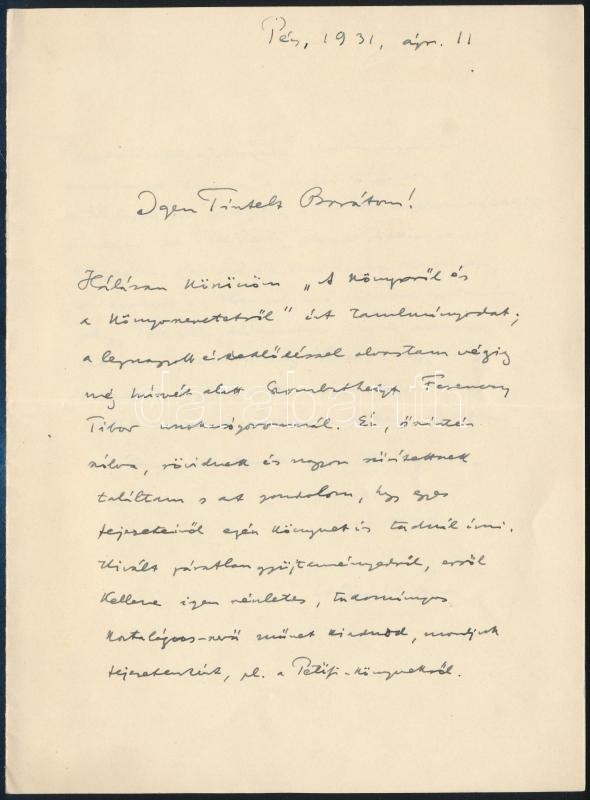 Pécs, 1931. ápr. 11
Igen Tisztelt Barátom!
Hálásan köszönöm "A Könyvről és
a könyvszeretetről" írt tanulmányodat;
a legnagyobb érdeklődéssel olvastam végig
még húsvét alatt Szombathelyt Ferenczy
Tibor unokaöcsémnél. Én, őszintén
szólva, rövidnek és nagyon sűrítettnek
találtam s azt gondolom, hogy egyes
fejezeteiről egész könyvet is tudnál írni.
Kivált páratlan gyűjteményedről, erről
kellene igen részletes, tudományos
katalógus-szerű művet kiadnod, mondjuk
fejezetenként, pl. a Petőfi-könyvekről.
darabanth